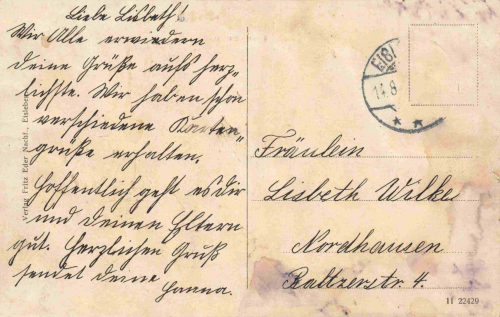 Liebe Lisbeth!
Wir Alle erwiedern
deine Grüße aufs herz=
lichste. Wir haben schon
verschiedene Karten=
grüße erhalten.
Hoffentlich geht es dir
und deinen Eltern
gut. Herzlichen Gruß
sendet deine
Hanna.
Verlag Fritz Eder Nachf., Eisleben
Fräulein
Lisbeth Wilke
Nordhausen
Baltzerstr. 4.
II 22429